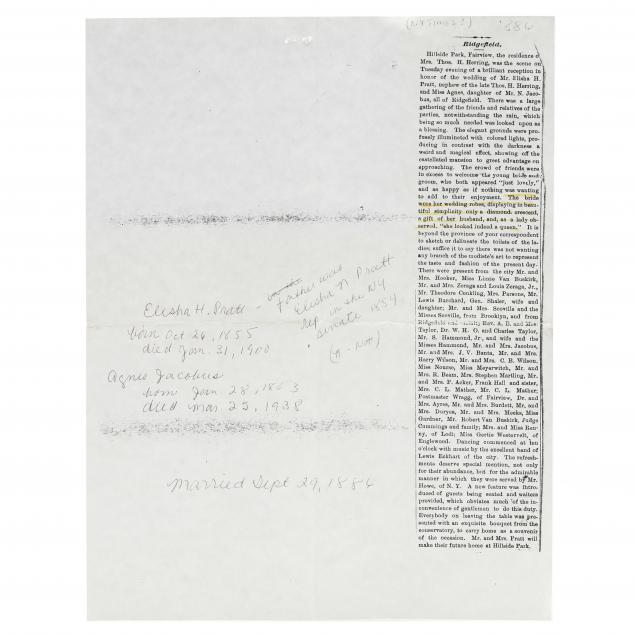 1886
Ridgefield.
Hillside Park, Fairview, the residence o
Mrs. Thos. H. Herring, was the scene on
Tuesday evening of a brilliant reception in
honor of the wedding of Mr. Elisha H.
Pratt, nephew of the late Thos. H. Herring,
and Miss Agnes, daughter of Mr. N. Jaco-
bus, all of Ridgefield. There was a large
gathering of the friends and relatives of the
parties, notwithstanding the rain, which
being so much needed was looked upon as
a blessing. The elegant grounds were pro-
fusely illuminated with colored lights, pro-
ducing in contrast with the darkness a
weird and magical effect, showing off the
castellated mansion to great advantage on
approaching. The crowd of friends were
in excess to welcome the young bride and
groom, who both appeared "just lovely,"
and as happy as if nothing was wanting
to add to their enjoyment. The bride
wore her wedding robes, displaying in beau-
tiful simplicity only a diamond crescent,
a gift of her husband, and, as a lady ob-
served, "she looked indeed a queen." It is
beyond the province of your correspondent
to sketch or delineate the toilets of the la-
dies; suffice it to say there was not wanting
any branch of the modiste's art to represent
the taste and fashion of the present day.
There were present from the city Mr. and
Mrs. Hooker, Miss Linnie Van Buskirk,
Mr. and Mrs. Zeraga and Louis Zeraga, Jr.,
Mr. Theodore Conkling, Mrs. Parsons, Mr.
Lewis Burchard, Gen. Shaler, wife and
daughter; Mr. and Mrs. Scoville and the
Misses Scoville, from Brooklyn, and from
Ridgefield and vicinity Rev. A. B. and Mrs.
Taylor, Dr. W. H. O. and Charles Taylor,
Mr. S. Hammond, Jr., and wife and the
Misses Hammond, Mr. and Mrs. Jacobus,
Mr. and Mrs. J. V. Banta, Mr. and Mrs.
Harry Wilson, Mr. and Mrs. C. B. Wilson,
Miss Nourse, Miss Meyerwitch, Mr. and
Mrs. R. Beam, Mrs. Stephen Martling, Mr.
and Mrs. F. Acker, Frank Hall and sister,
Mrs. C. L. Mather, Mr. C. L. Mather,
Postmaster Wragg, of Fairview, Dr. and
Mrs. Ayres, Mr. and Mrs. Burdett, Mr. and
Mrs. Duryea, Mr. and Mrs. Meeks, Miss
Gardner, Mr. Robert Van Buskirk, Judge
Cummings and family; Mrs. and Miss Ren-
ny, of Lodi; Miss Gertie Westervelt, of
Englewood. Dancing commenced at ten
o'clock with music by the excellent band of
Lewis Eckhart of the city. The refresh-
ments deserve special mention, not only
for their abundance, but for the admirable
manner in which they were served by Mr.
Howe, of N. Y. A new feature was intro-
duced of guests being seated and waiters
provided, which obviates much of the in-
convenience of gentlemen to do this duty.
Everybody on leaving the table was pre-
sented with an exquisite bouquet from the
conservatory, to carry home as a souvenir
of the occasion. Mr. and Mrs. Pratt will
make their future home at Hillside Park.
Elisha H. Pratt -
born Oct 26, 1855
died Jan. 31, 1900
Father was
Elisha N Pratt
rep in the NY
senate 1854
Agnes Jacobus
born Jan 28, 1863
died Mar. 25, 1938
Married Sept 29, 1886